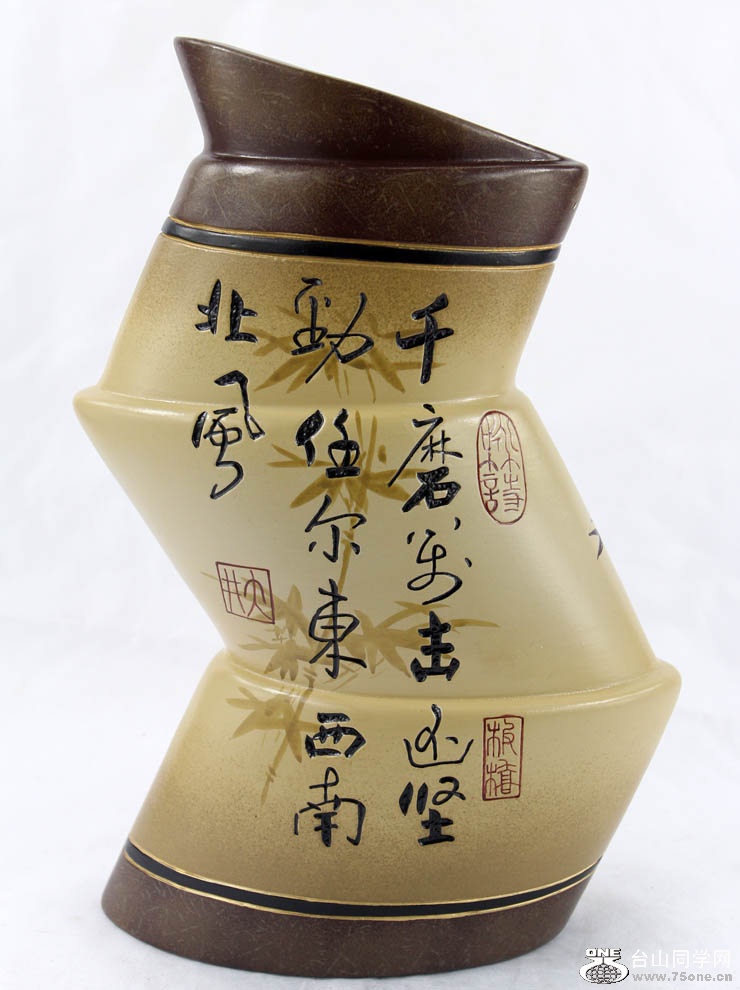 千磨萬击还坚
勁任尔東西南
北風
板橋
ONE
台山同学网
www.75one.cn